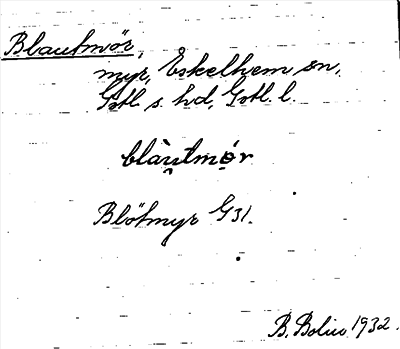 Blautmör,
myr, Eskelhem sn,
Gotl. s. hd, Gotl. l.
blàu̯tmǫr
Blötmyr G31.
B. Bolin 1932.